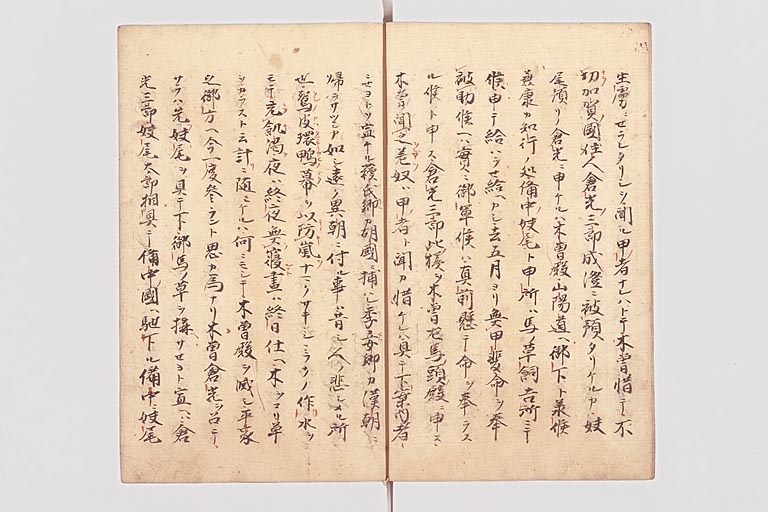 生虜ニセラレタリシヲ聞ル甲者ナレハトテ木曽惜テ不
切加賀國住人倉光三郎成澄ニ被預タリケルカ妹
尾預リ倉光ニ申ケルハ木曽殿山陽道ヘ御下ト承候
兼康カ知行ノ処備中妹尾ト申所ハ馬ノ草飼吉所ニテ
候申テ給ハラセ給ヘカシ去五月ヨリ無甲斐命ヲ奉
被助候ヘハ實ニ御軍候ハ真前懸テ命ヲ奉ラス
ル候ト申ス倉光三郎此様ヲ木曽左馬頭殿ニ申ス
木曽聞之奴ハ甲者ト聞カ惜ケレハ具テ下案内者
ミセヨトソ宣ケル蘓氏卿カ胡國ニ捕ハレ季少卿カ漢朝ニ
帰ラサリシカ如シ遠ノ異朝ニ付ル事ハ昔シ人ノ悲シメル所
也鴛皮環鴨幕ヲ以防嵐ナマクサキシミラヤノ作水ヲ
モテ充飢渇夜ハ終夜無寝晝ハ終日仕ヘ木ヲコリ草
ヲカラスト云計ニ随ミケルハ何ニモシテ木曽殿ヲ滅シ平家
之御方ヘ今一度参ラント思カ為ナリ木曽倉光ヲ召テ
サラハ先妹尾ヲ具テ下御馬ノ草ヲ構サセヨト宣ヘハ倉
光三郎妹尾太郎相具テ備中國ヘ馳下ル備中妹尾